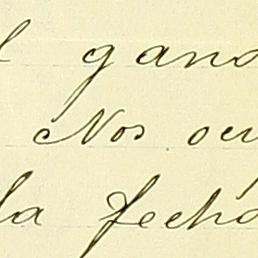 l gana
Nos ocu
la fecha